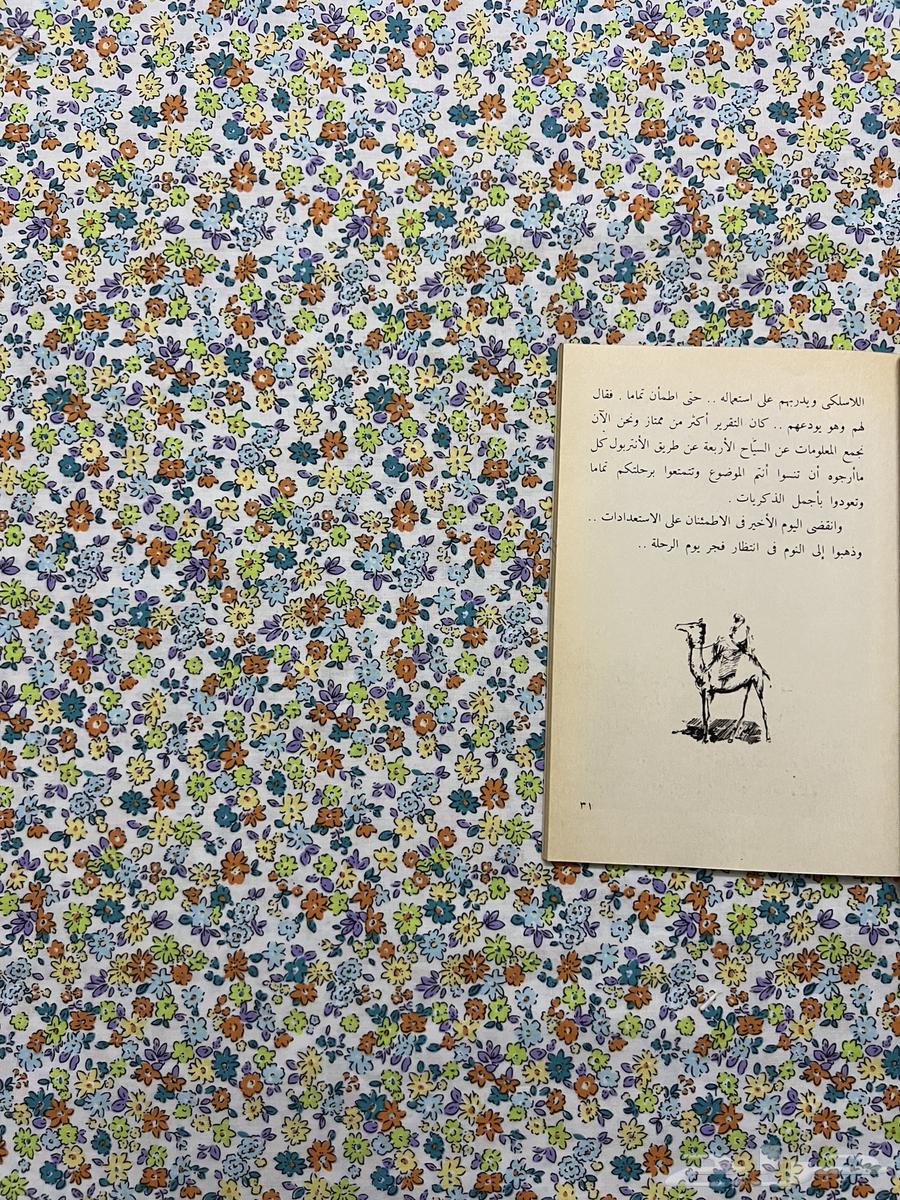 اللاسلكى ويدربهم على استعماله .. حتى اطمأن تماما . فقال
لهم وهو يودعهم .. كان التقرير أكثر من ممتاز ونحن الآن
نجمع المعلومات عن السيّاح الأربعة عن طريق الأنتربول كل
ماأرجوه أن تنسوا أنتم الموضوع وتتمتعوا برحلتكم تماما
وتعودوا بأجمل الذكريات .
وانقضى اليوم الأخير فى الاطمئنان على الاستعدادات ..
وذهبوا إلى النوم فى انتظار فجر يوم الرحلة ..
٣١